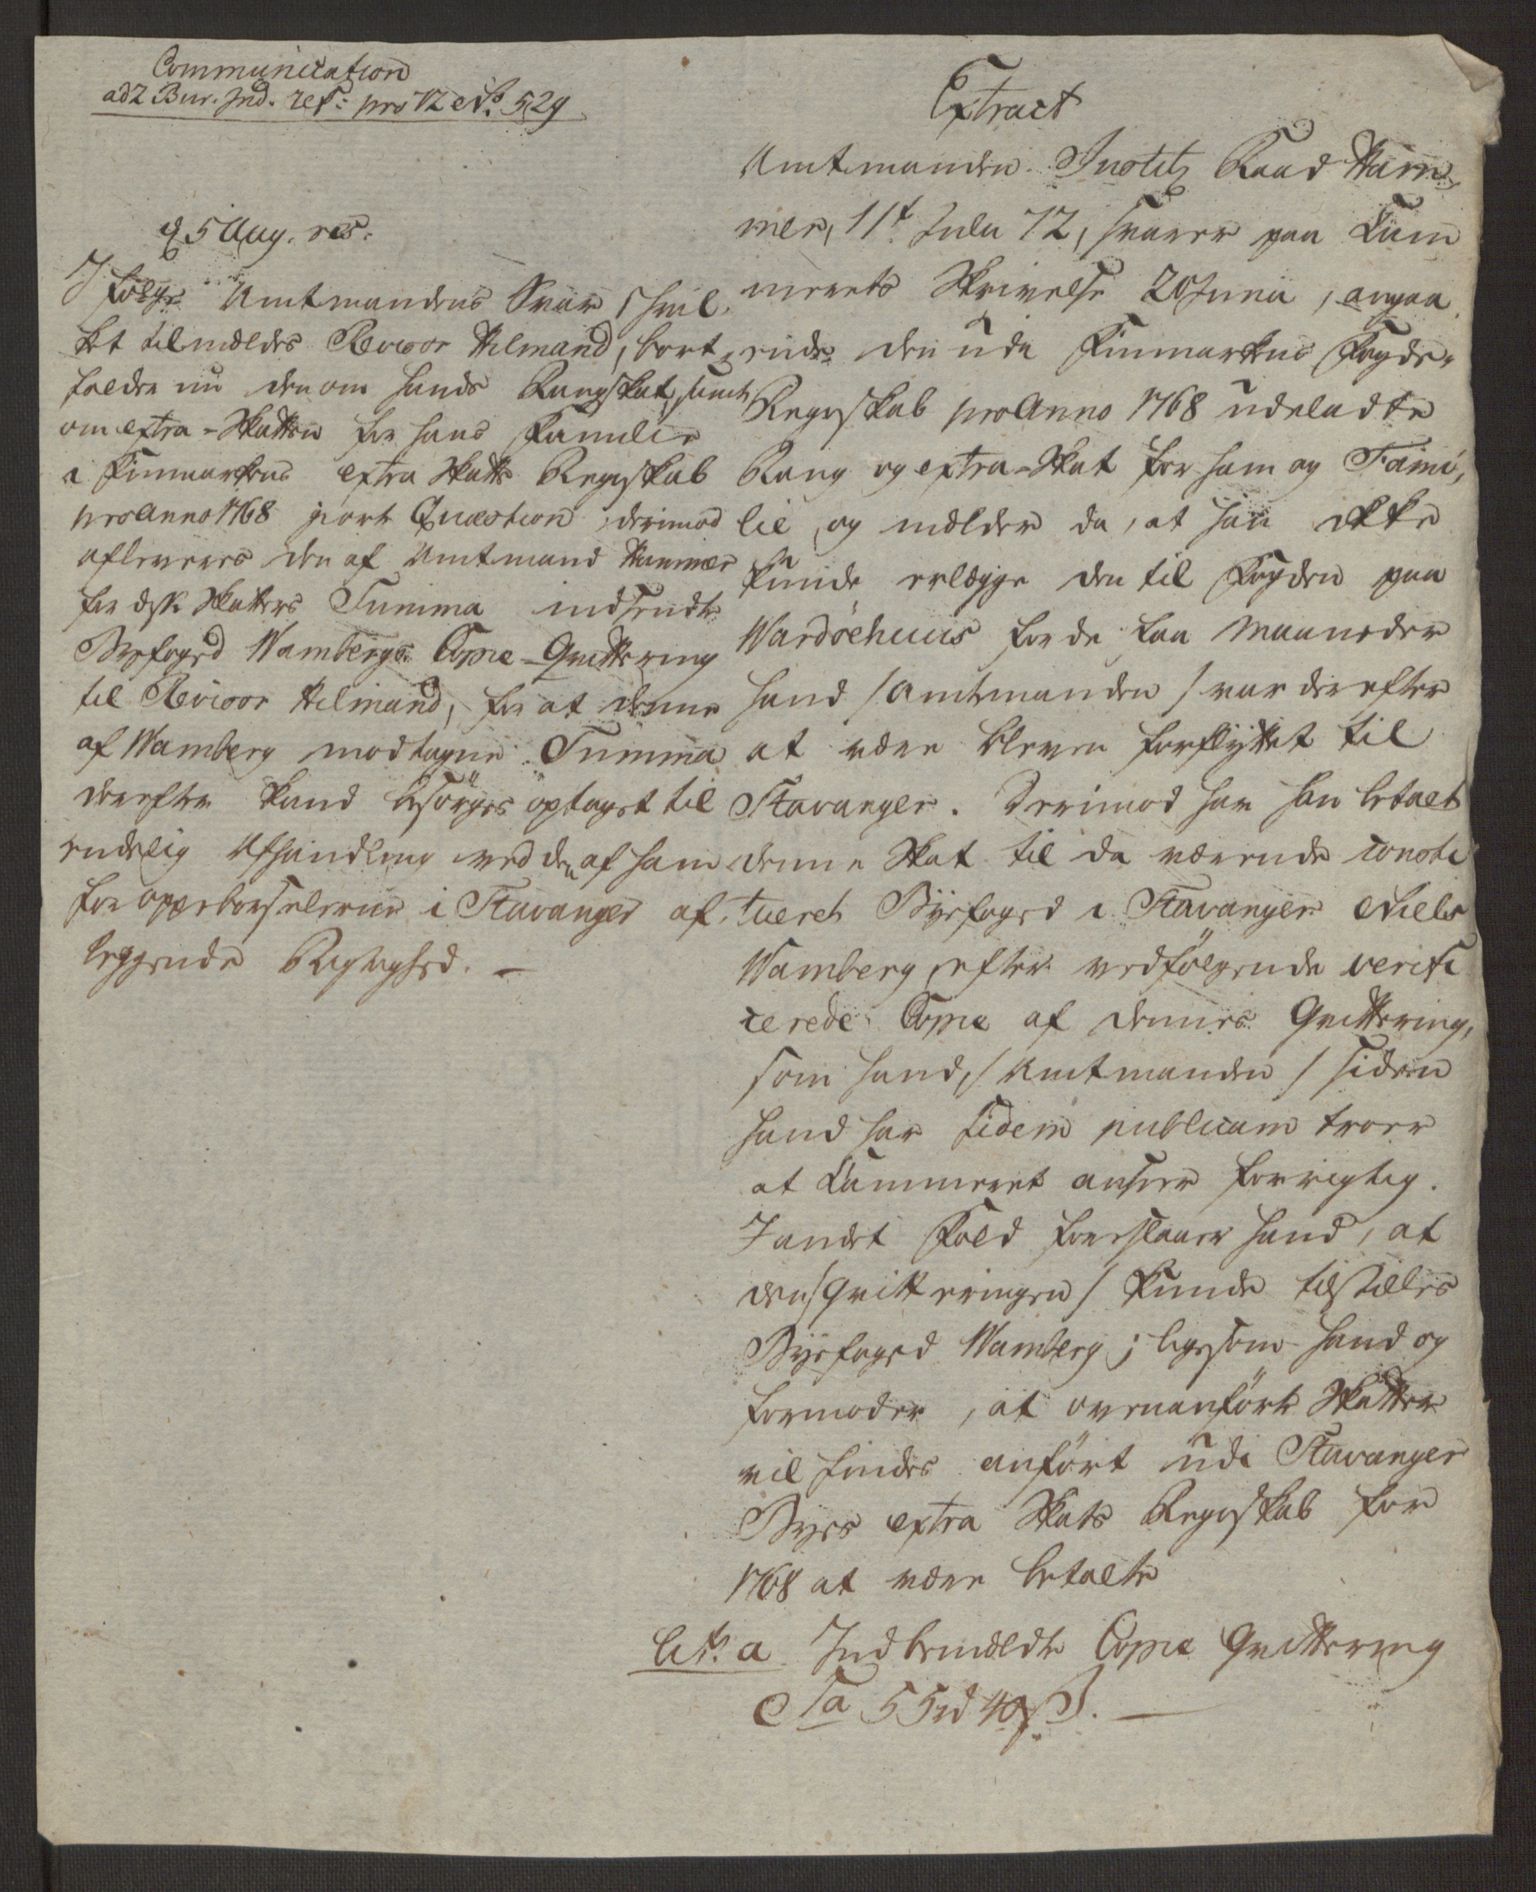 Communication
ad 2 Bur. Ind. ref: pro 72 No. 529
d 5 Aug. res:
I følge Amtmandens Svar, hvil-
ket tilmeldes Revisor Hilmand, bort-
falder nu den om hands Rangskat, samt
om extra-Skatten for hans Familie
i Finmarkens extra Skatts Regnskab
pro Anno 1768 giort Quæstion, derimod
afleveres den af Amtmand Hammer
for disse Skatters Summa indsendte
Byefoged Wambergs Copie-Qvittering
til Revisor Hilmand, for at denne
af Wamberg modtagne Summa
derefter kand besørges optaget til
endelig Afhandling ved den af ham
for oppebørselerne i Stavanger af-
leggende Rigtighed. –
Extract
Amtmanden Justitz Raad Ham-
mer, 11t. Julii 72, svarer paa Cam-
merets Skrivelse 20 Junii, angaa-
ende den udi Finmarkens Fogde-
Regnskab pro Anno 1768 udeladte
Rang og extra-Skat for ham og Fami-
lie, og melder da, at han ikke
kunde erlægge den til Fogden paa
Wardøehuus for de faa Maaneder
hand /Amtmanden/ var derefter
at være bleven forflyttet til
Stavanger. Derimod har han betalt
denne Skat til da værende consti-
tueret Byefoged i Stavanger Niels
Wamberg, efter vedfølgende verifi-
cerede Copie af dennes Qvittering,
som hand, /Amtmanden/ siden
hand har fidem publicam troer
at Cammeret anseer for rigtig.
I andet Fald foreslaaer hand, at
den /Qvitteringen/ kunde tilstilles
Byefoged Wamberg; ligesom hand og
formoder, at ovenanførte Skatter
vil findes anført udi Stavanger
Byes extra Skats Regnskab for
1768 at være betalte
Litr. a Indbemeldte Copie Qvittering
Sa 55 rd 40 s. –